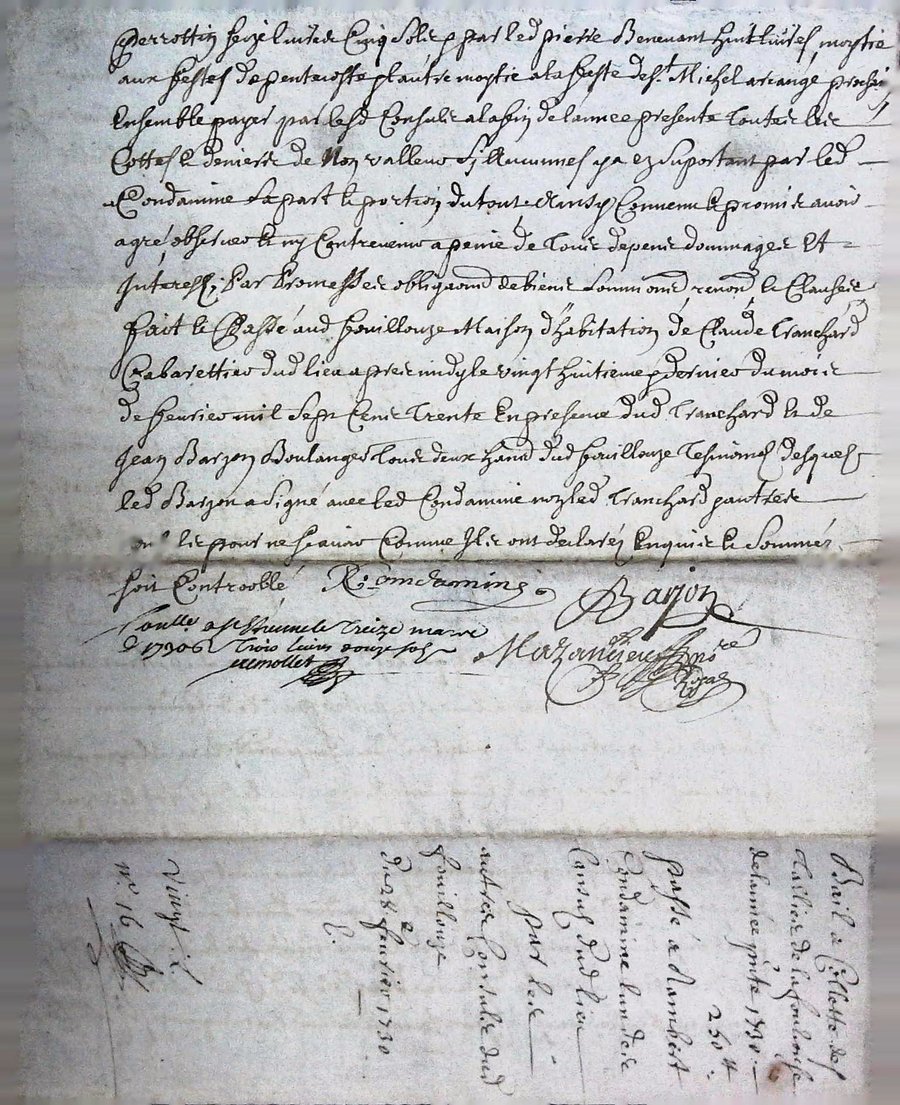 Perrottin seize livres Cinq Sols & par led pierre Benevant huit livres, moytié
aux festes de pentecoste & l'autre moytié a la feste de St Michel arcange prochain
Ensemble payer par lesd Consuls a la fin de lannee presente toutes les
Cottes & deniers de Non valleur Sy Aucunnes y a en Suportant par led
Condamine Sa part & portion du tout Ainsy Convenu & promis avoir
agré observer & ny Contrevenir a peine de tous depens dommages Et
Interests, Par Promesses obligaond de biens Soumiond renond & Clauses
fait & Passé aud fouillouze Maison d'habitation de Claude Tranchard
Cabarettier dud lieu apres midy le vingt huitieme & dernier du mois
de feuvrier mil Sept Cents Trente En presence dud Tranchard & de
Jean Barjon Boulanger tous deux dud fouillouze tesmoins desquels
led Barjon a Signé avec led Condamine non led Tranchard
pour ne Scavoir Comme Ils ont declaré Enquis & Sommés
Soit Controollé R. Condamine Barjon
Conllé a St Estienne le Treize mars
1730 Trois livres douze sols
Mazandieu nore
Royal
Bail a Collotte des
tallies de la fouillouse
de lannée pnte 1730
250 tt
passé a Rambert
Condamine lun des
Consuls dud lieu
par les
autres Consuls dud
fouillouze
du 28e feuvrier 1730
C.
Vingt
n° 16